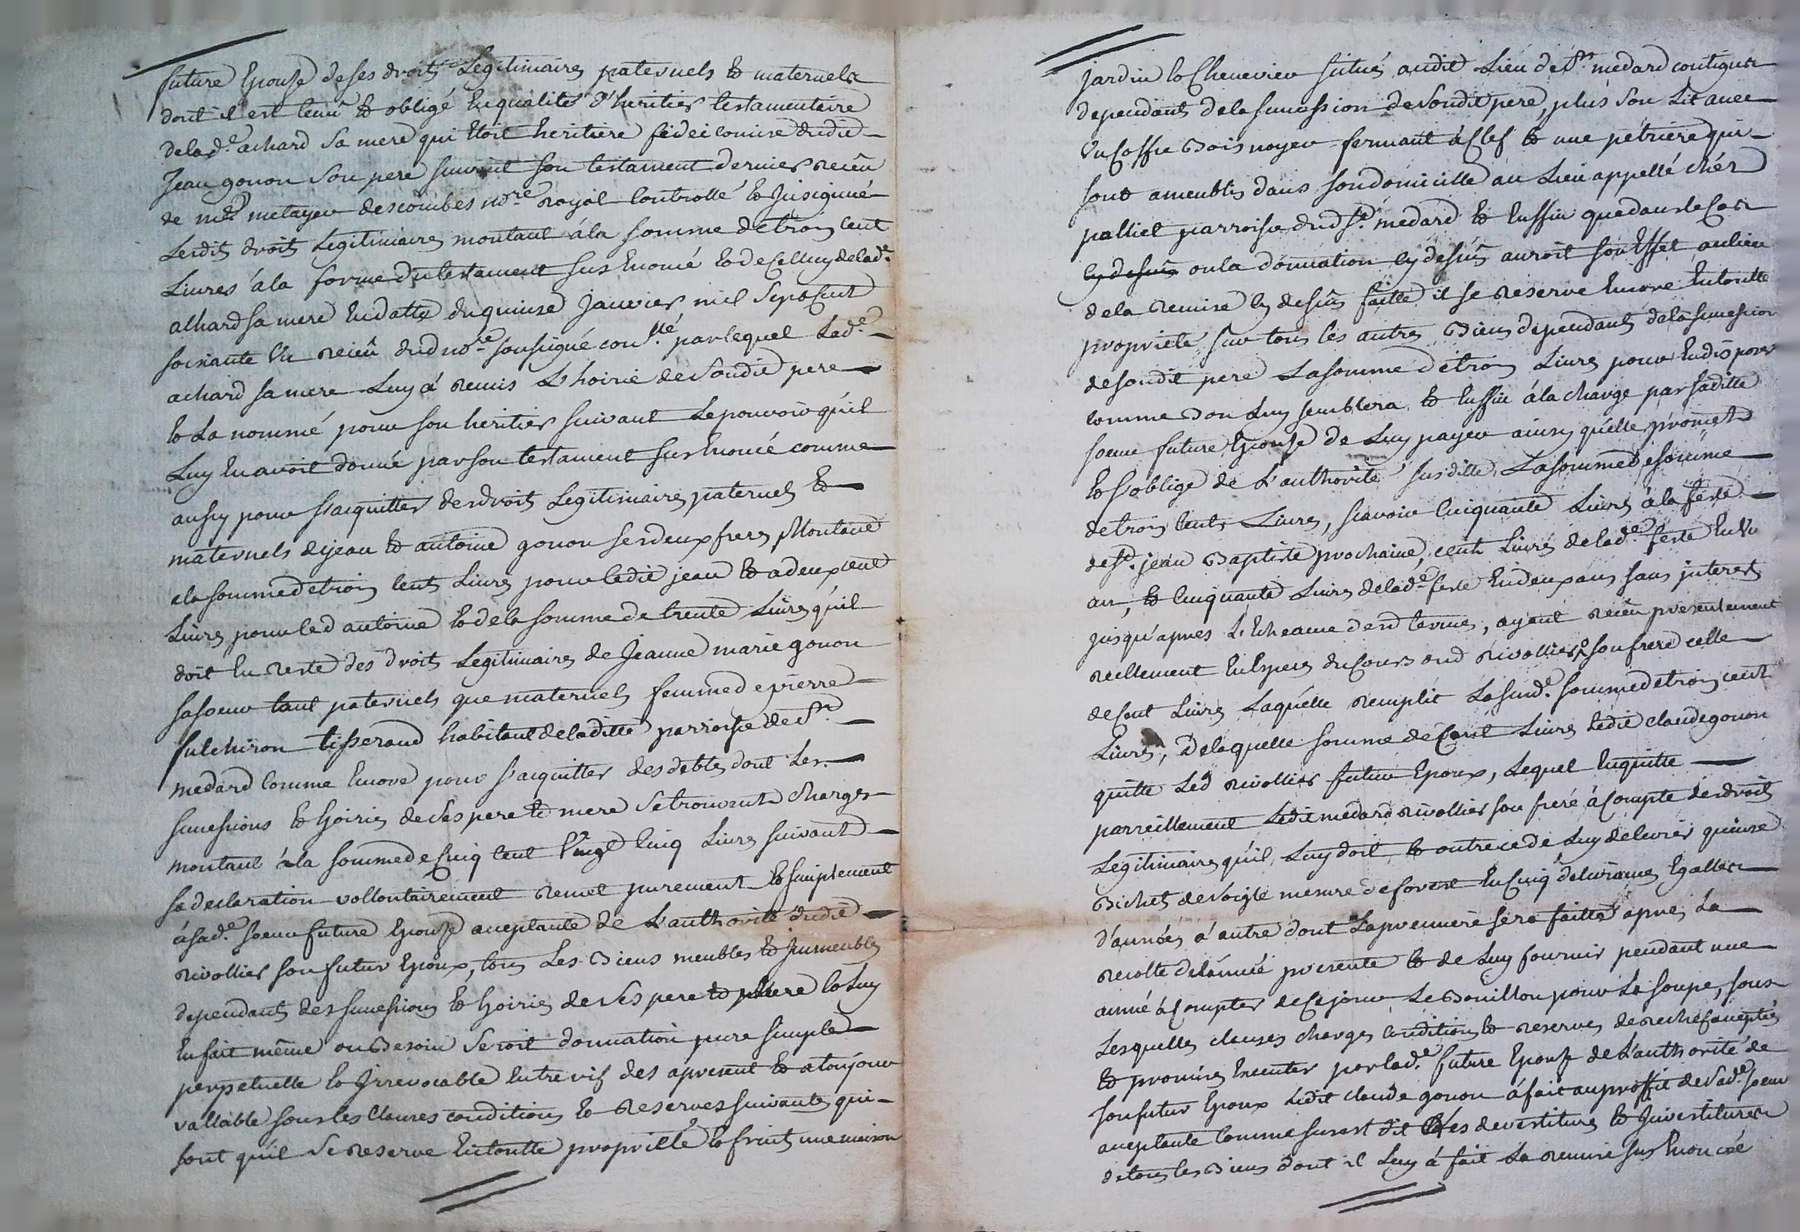 future Epouse de ses droits Legitimaires paternels et maternels
dont il est tenû et obligé en qualité d'heritier testamentaire
de lad.e achard sa mere qui etoit heritiere fideicomise dudit
Jean gonon son pere suivant son testament dernier recëu
de me metayer descombes no.re royal Controllé et Insigniié
Lesdits droits Legitimaires montant á la somme de trois cent
Livres á la forme du testament sus Enoncé et de Celluy de lad.e
achard sa mere En datte du quinse Janvier mil Sept Cent
soixante Un recëu dud no.re soussigné con.lé par lequel Lad.e
achard sa mere Luy á remis L'hoirie de Sondit pere
et La nommé pour son heritier suivant Le pouvoir qu'il
Luy En avoit donné par son testament sus Enoncé comme
aussy pour s'acquitter des droits Legitimaires paternels et
maternels de jean et antoine gonon ses deux freres Montant
a la somme de trois cent Livres pour ledit jean et a deux cent
Livres pour led antoine et de la somme de trente Livres qu'il
doit En reste des droits Legitimaires de Jeanne marie gonon
sa soeur tant paternels que maternels femme de pierre
fulchiron tisserand habitant de laditte parroisse de St
medard Comme Encore pour s'acquitter des debtes dont Les
successions et hoiries de Ses pere et mere Se trouvent chargés
montant á la somme de Cinq cent Vingt Cinq Livres suivant
sa declaration vollontairement remet purement et simplement
á sad.e soeur future Epouse aceptante de L'authorité dudit
rivollier son futur Epoux, tous Les Biens meubles et Immeubles
dependants des successions et hoiries de Ses pere et mere et Luy
En fait même ou Besoin Seroit donnation pure simple
perpetuelle et Irrevocable Entre vifs des apresent et a toujour
vallable sous les Clauses conditions et reserves suivantes qui
sont qu'il Se reserve En toutte proprieté et fruits une maison
jardin et Chenevier situés audit Lieu de St medard contigus
dependants de la succession de Sondit pere, plus Son Lit avec
Un Coffre Bois noyer fermant á Clef et une pétriere qui
sont ameublés dans son domicille au Lieu appellé chér
palliet parroisse dud St. medard et Enffin que dans le Cas
cy dessus ou la donnation cy dessus auroit son Effet au lieu
de la remise cy dessus faitte il se reserve Encore En toutte
proprieté sur tous les autres Biens dependants de la succession
de sondit pere La somme de trois Livres pour En disposer
comme Bon Luy semblera et Enffin á la charge par saditte
soeur future Epouse de Luy payer ainsy qu'elle promet
et s'oblige de L'authorité susditte La somme de somme
de trois Cents Livres, scavoir Cinquante Livres á la feste
de St. jean Baptiste prochaine, cent Livres de lad.e feste En Un
an, et Cinquante Livres de lad.e feste En deux ans sans interest
jusqu'apres L'Echeance desd termes, ayant recëu presentement
reellement En Especes du Cours dud rivollier son frere celle
de Cent Livres Laquelle remplit La susd.e somme de trois cent
Livres; De laquelle somme de Cent Livres ledit claude gonon
quitte Led rivollier futur Epoux, Lequel En quitte
parreillement Ledit medard rivollier son frere á Compte des droits
Legitimaires qu'il Luy doit et outre ce de Luy delivrer quinse
Bichets de soigle mesure de forest En Cinq delivrances Egalles
d'années á autre dont La premiere sera faitte apres La
recolte de l'année presente et de Luy fournir pendant une
année á Compter de Ce jour Le Bouillon pour La soupe, sous
Lesquelles clauses charges conditions et reserves de rechef aceptés
et promises Executer par lad.e future Epouse de L'authorité de
son futur Epoux Ledit claude gonon á fait au proffit de Sad.e soeur
aceptante Comme sus est dit Les devestitures et Investitures
de tous les Biens dont il Luy á fait La remise sus Enoncée